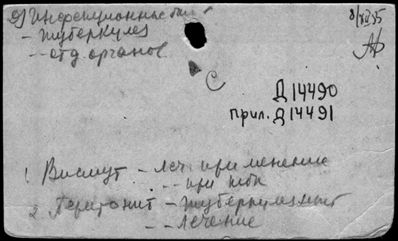 2) Инфекционные бол.
- туберкулез
- отд. органов
8/XII 55
С
Д 14490
прил. Д 14491
1. Висмут - леч. применение
- - при tbc
2. Перитонит - туберкулезный
- - лечение